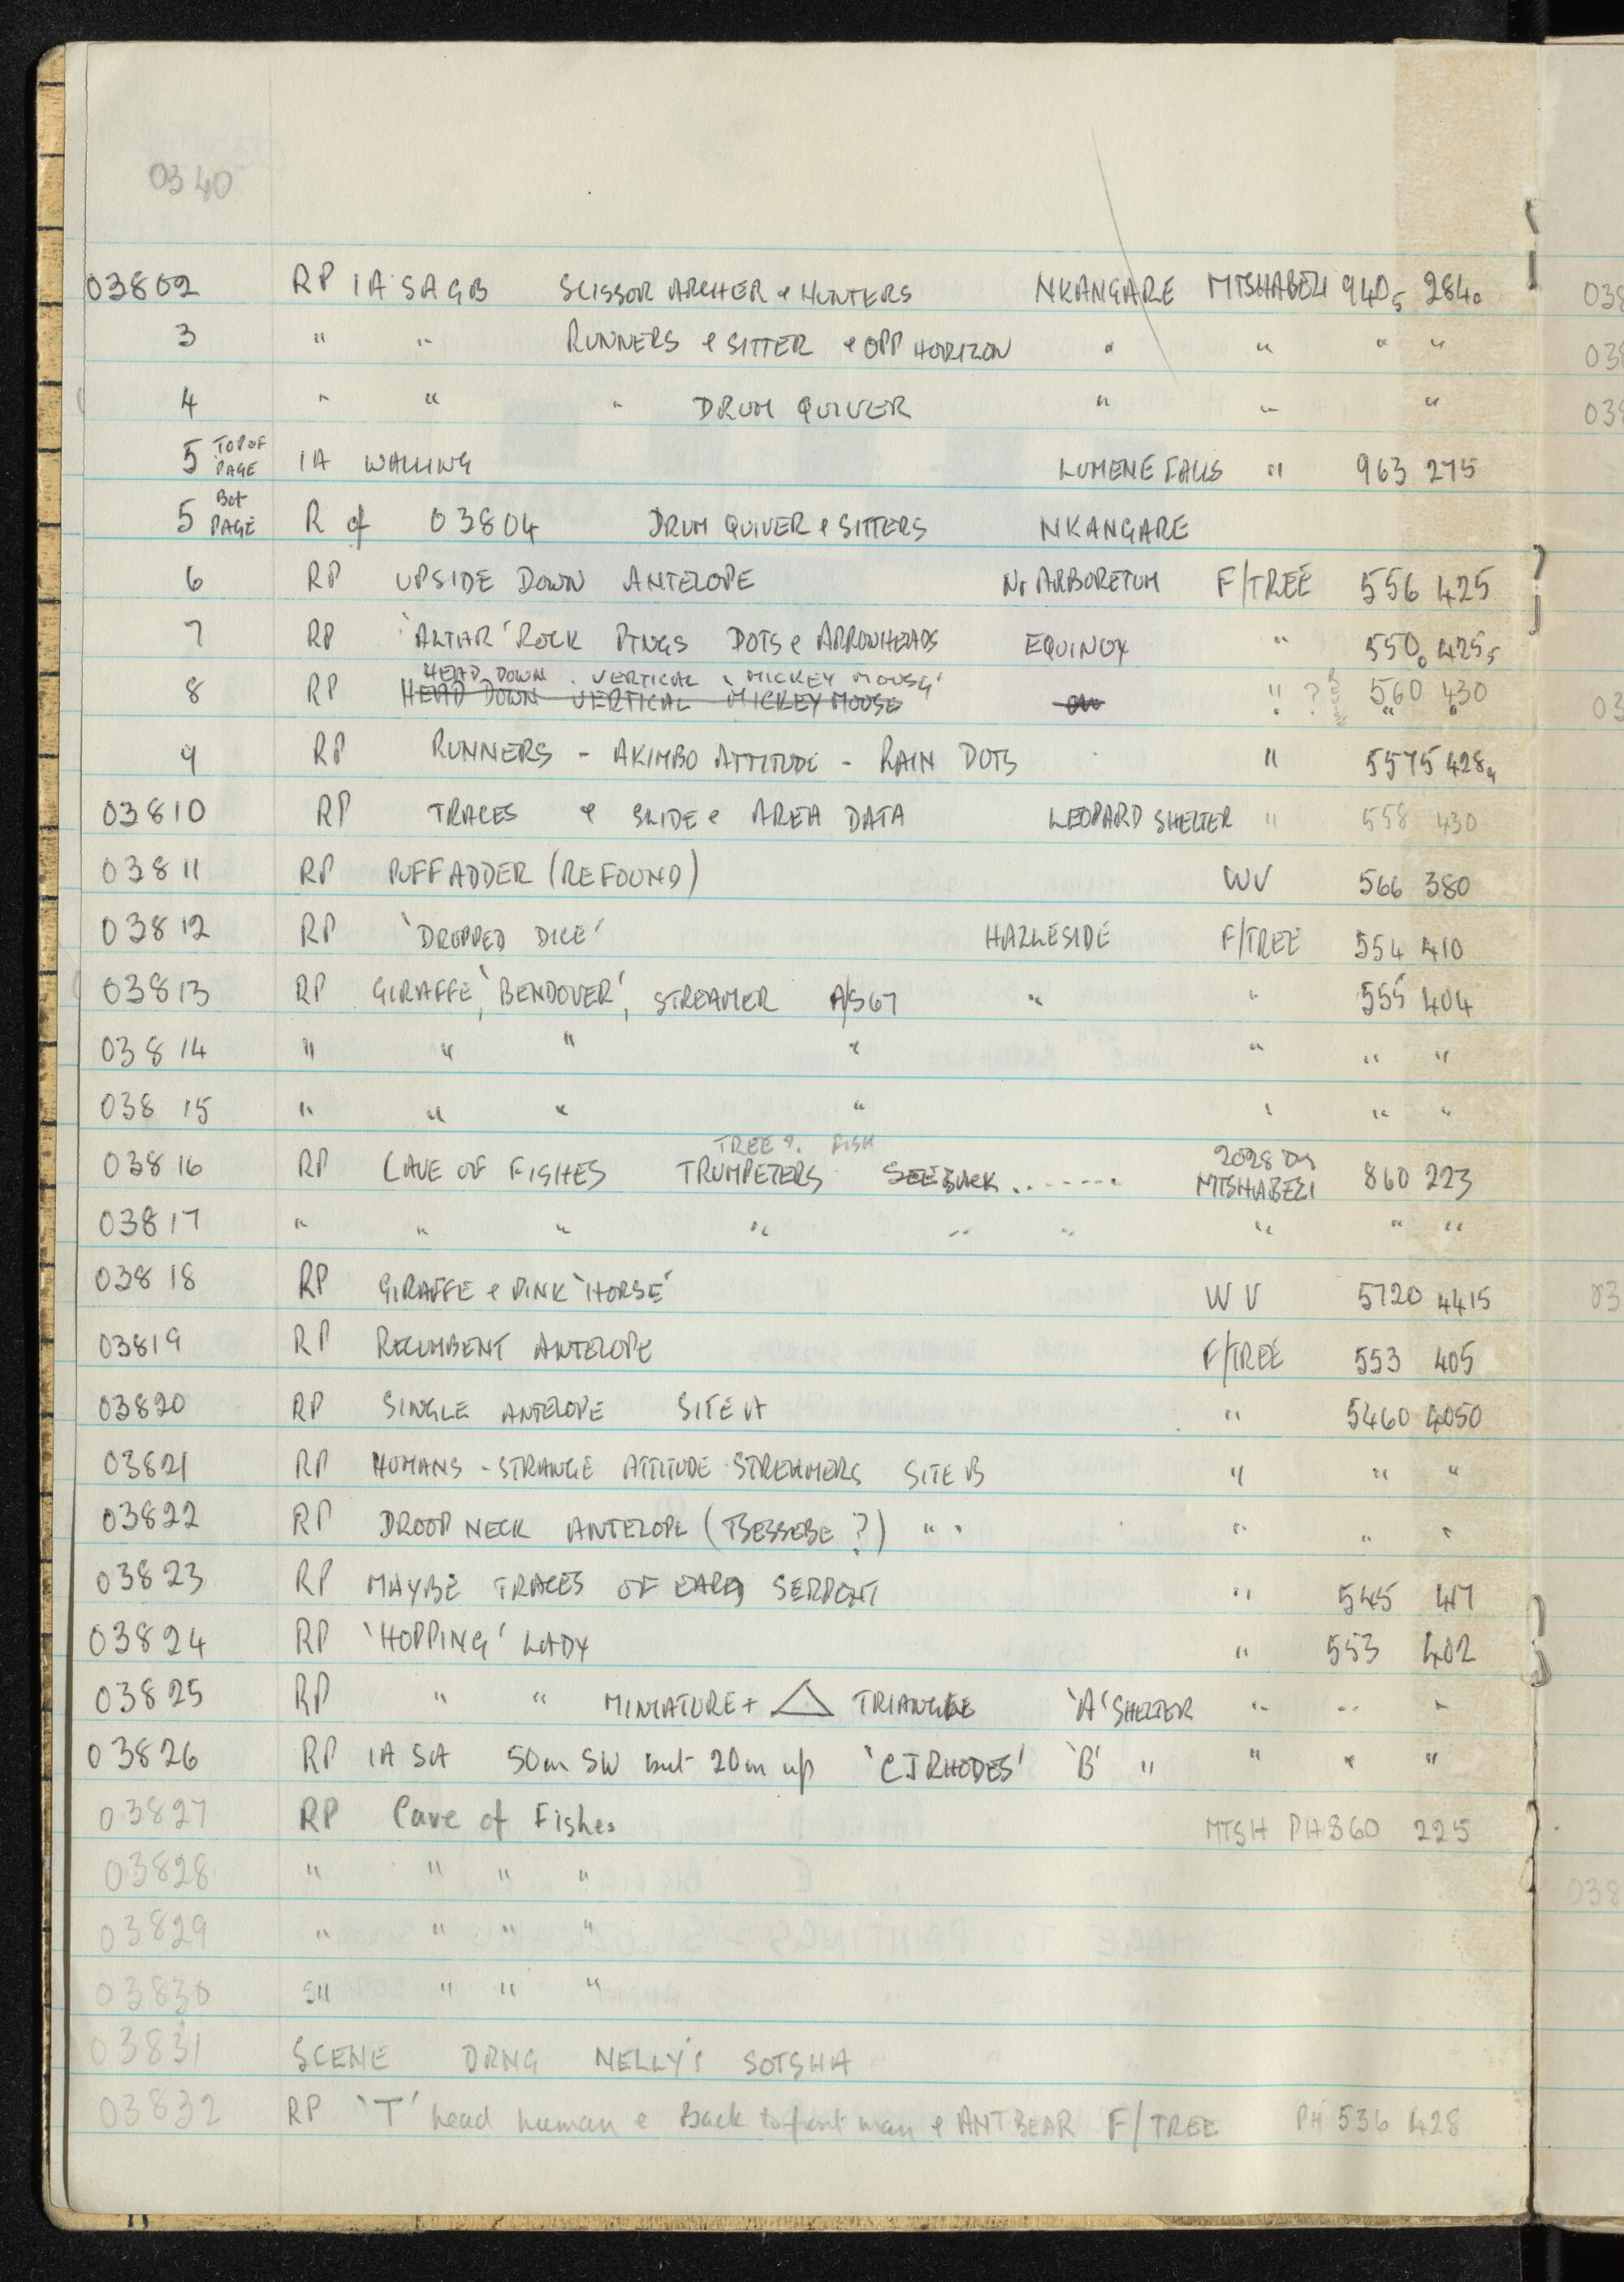 0340
03802 RP IA SAGB SCISSOR ARCHER & HUNTERS NKANGARE MTSHABEZI 9405 2840
3 " " RUNNERS & SITTER & OPP HORIZON " " " "
4 " " " DRUM QUIVER " " "
5 TOP OF PAGE IA WALLING LUMENE FALLS " 963 275
5 Bot PAGE R of 03804 DRUM QUIVER & SITTERS NKANGARE
6 RP UPSIDE DOWN ANTELOPE Nr ARBORETUM F/TREE 556 425
7 RP 'ALTAR' ROCK PTNGS DOTS & ARROWHEADS EQUINOX " 5500 4255
HEAD DOWN . VERTICAL 'MICKEY MOUSE'
8 RP HEAD DOWN VERTICAL MICKEY MOUSE " ? 560 430
" " "
9 RP RUNNERS - AKIMBO ATTITUDE - RAIN DOTS " 5575 4289
03810 RP TRACES & SLIDE & AREA DATA LEOPARD SHELTER " 558 430
03811 RP PUFFADDER (REFOUND) WV 566 380
03812 RP 'DROPPED DICE' HAZLESIDE F/TREE 554 410
03813 RP GIRAFFE, 'BENDOVER', STREAMER A/S67 " " 555 404
03814 " " " " " " "
03815 " " " " " " "
TREE?. FISH
03816 RP CAVE OF FISHES TRUMPETERS SEEBACK ....... 2028 MTSHABEZI 860 223
03817 " " " " " " " " "
03818 RP GIRAFFE & PINK 'HORSE' WV 5720 4415
03819 RP RECUMBENT ANTELOPE F/TREE 553 405
03820 RP SINGLE ANTELOPE SITE A " 5460 4050
03821 RP HUMANS - STRANGE ATTITUDE STREAMERS SITE B " " "
03822 RP DROOP NECK ANTELOPE (TSESSEBE ?) " " " " "
03823 RP MAYBE TRACES OF EARED SERPENT " 545 417
03824 RP 'HOPPING' LADY " 553 402
03825 RP " " MINIATURE + △ TRIANGLE 'A' SHELTER " " "
03826 RP IA SA 50m SW but 20m up 'CJRHODES' 'B' " " " "
03827 RP Cave of Fishes MTSH PH 860 225
03828 " " " "
03829 " " " "
03830 " " " "
03831 SCENE DRNG NELLY'S SOTSHA
03832 RP 'T' head human & Back to front man & ANTBEAR F/TREE PH 536 428